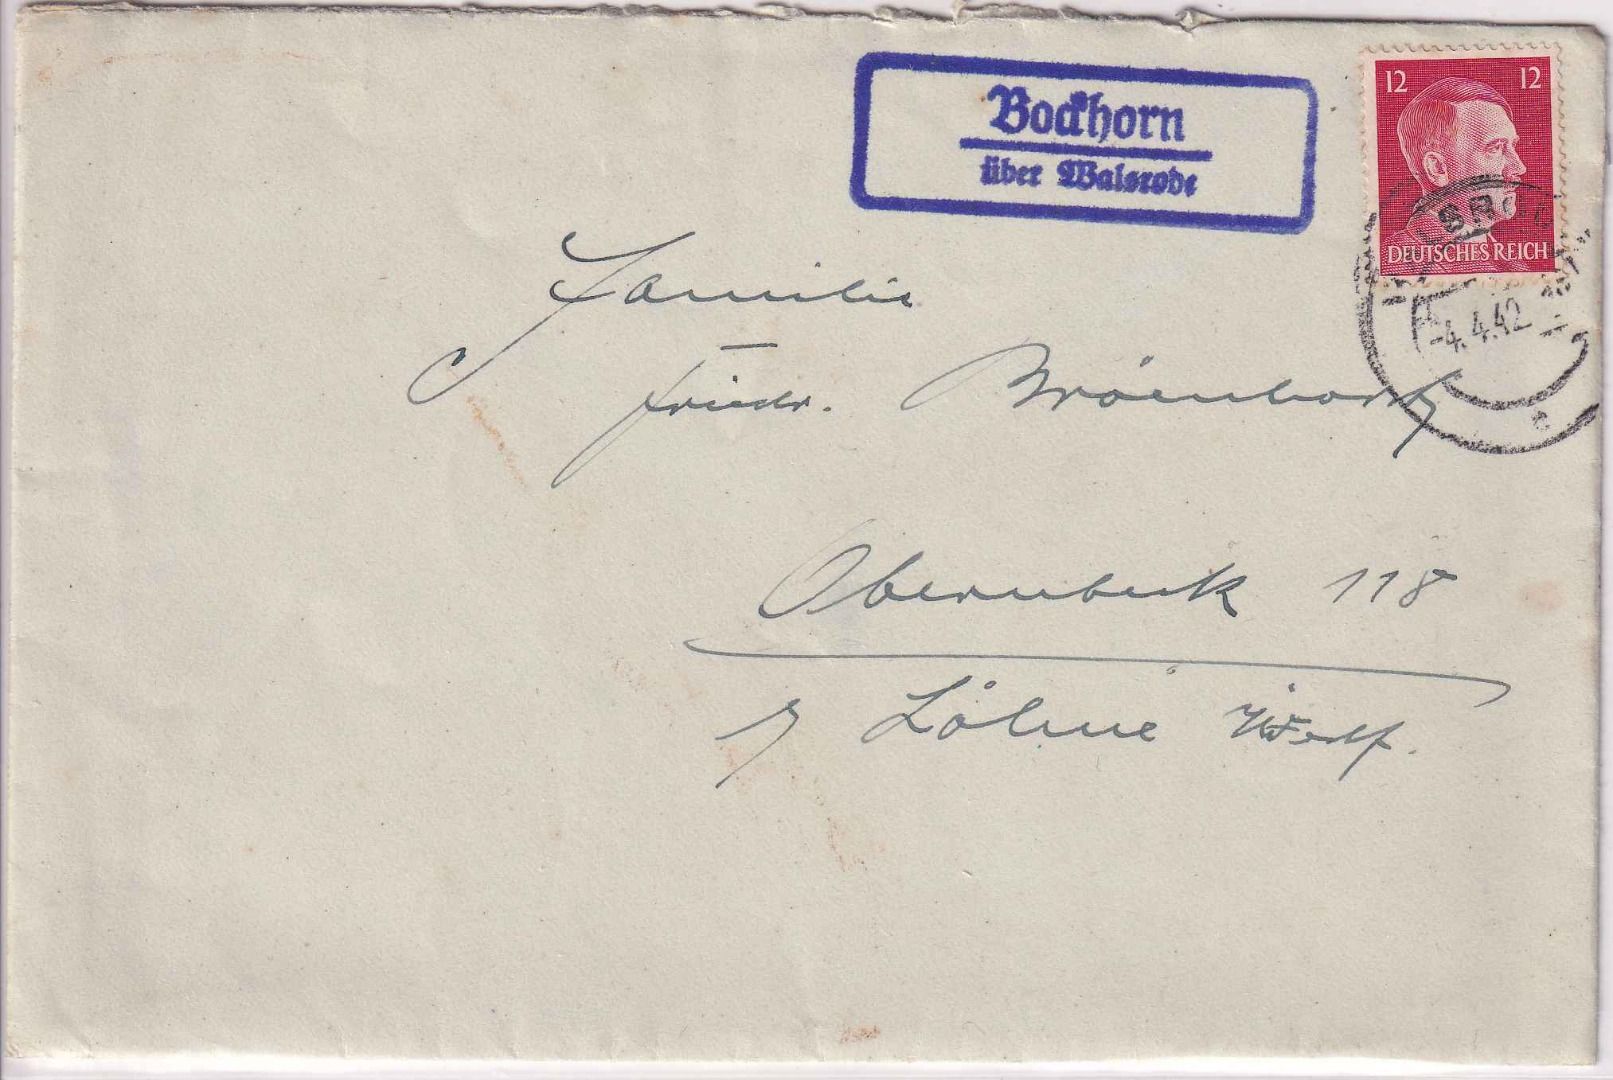 Bockhorn
über Walsrode
12 12
DEUTSCHES REICH
WALSRODE
-4.4.42
Familie
Friedr.
Obernbeck 118
Löhne Westf.